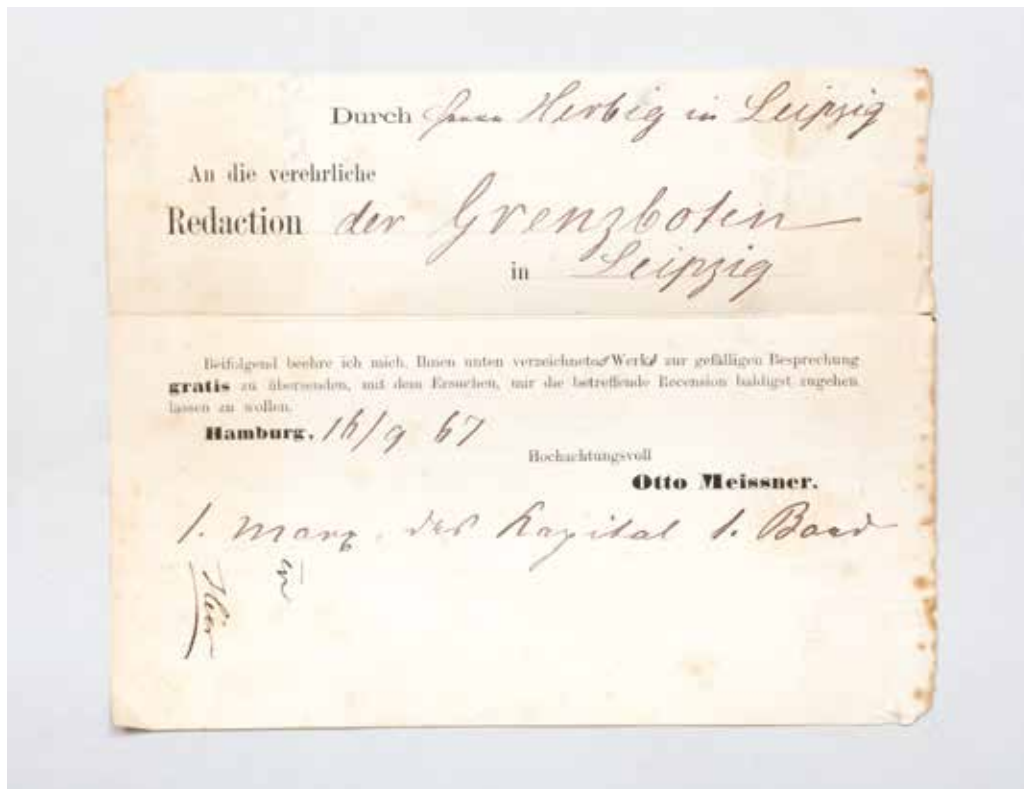 Durch Herrn Herbig in Leipzig
An die verehrliche
Redaction der Grenzboten
in Leipzig
Beifolgend beehre ich mich, Ihnen unten verzeichnetes Werk zur gefälligen Besprechung
gratis zu übersenden, mit dem Ersuchen, mir die betreffende Recension baldigst zugehen
lassen zu wollen.
Hamburg, 16/9 67
Hochachtungsvoll
Otto Meissner.
1. Marx, das Kapital 1. Band